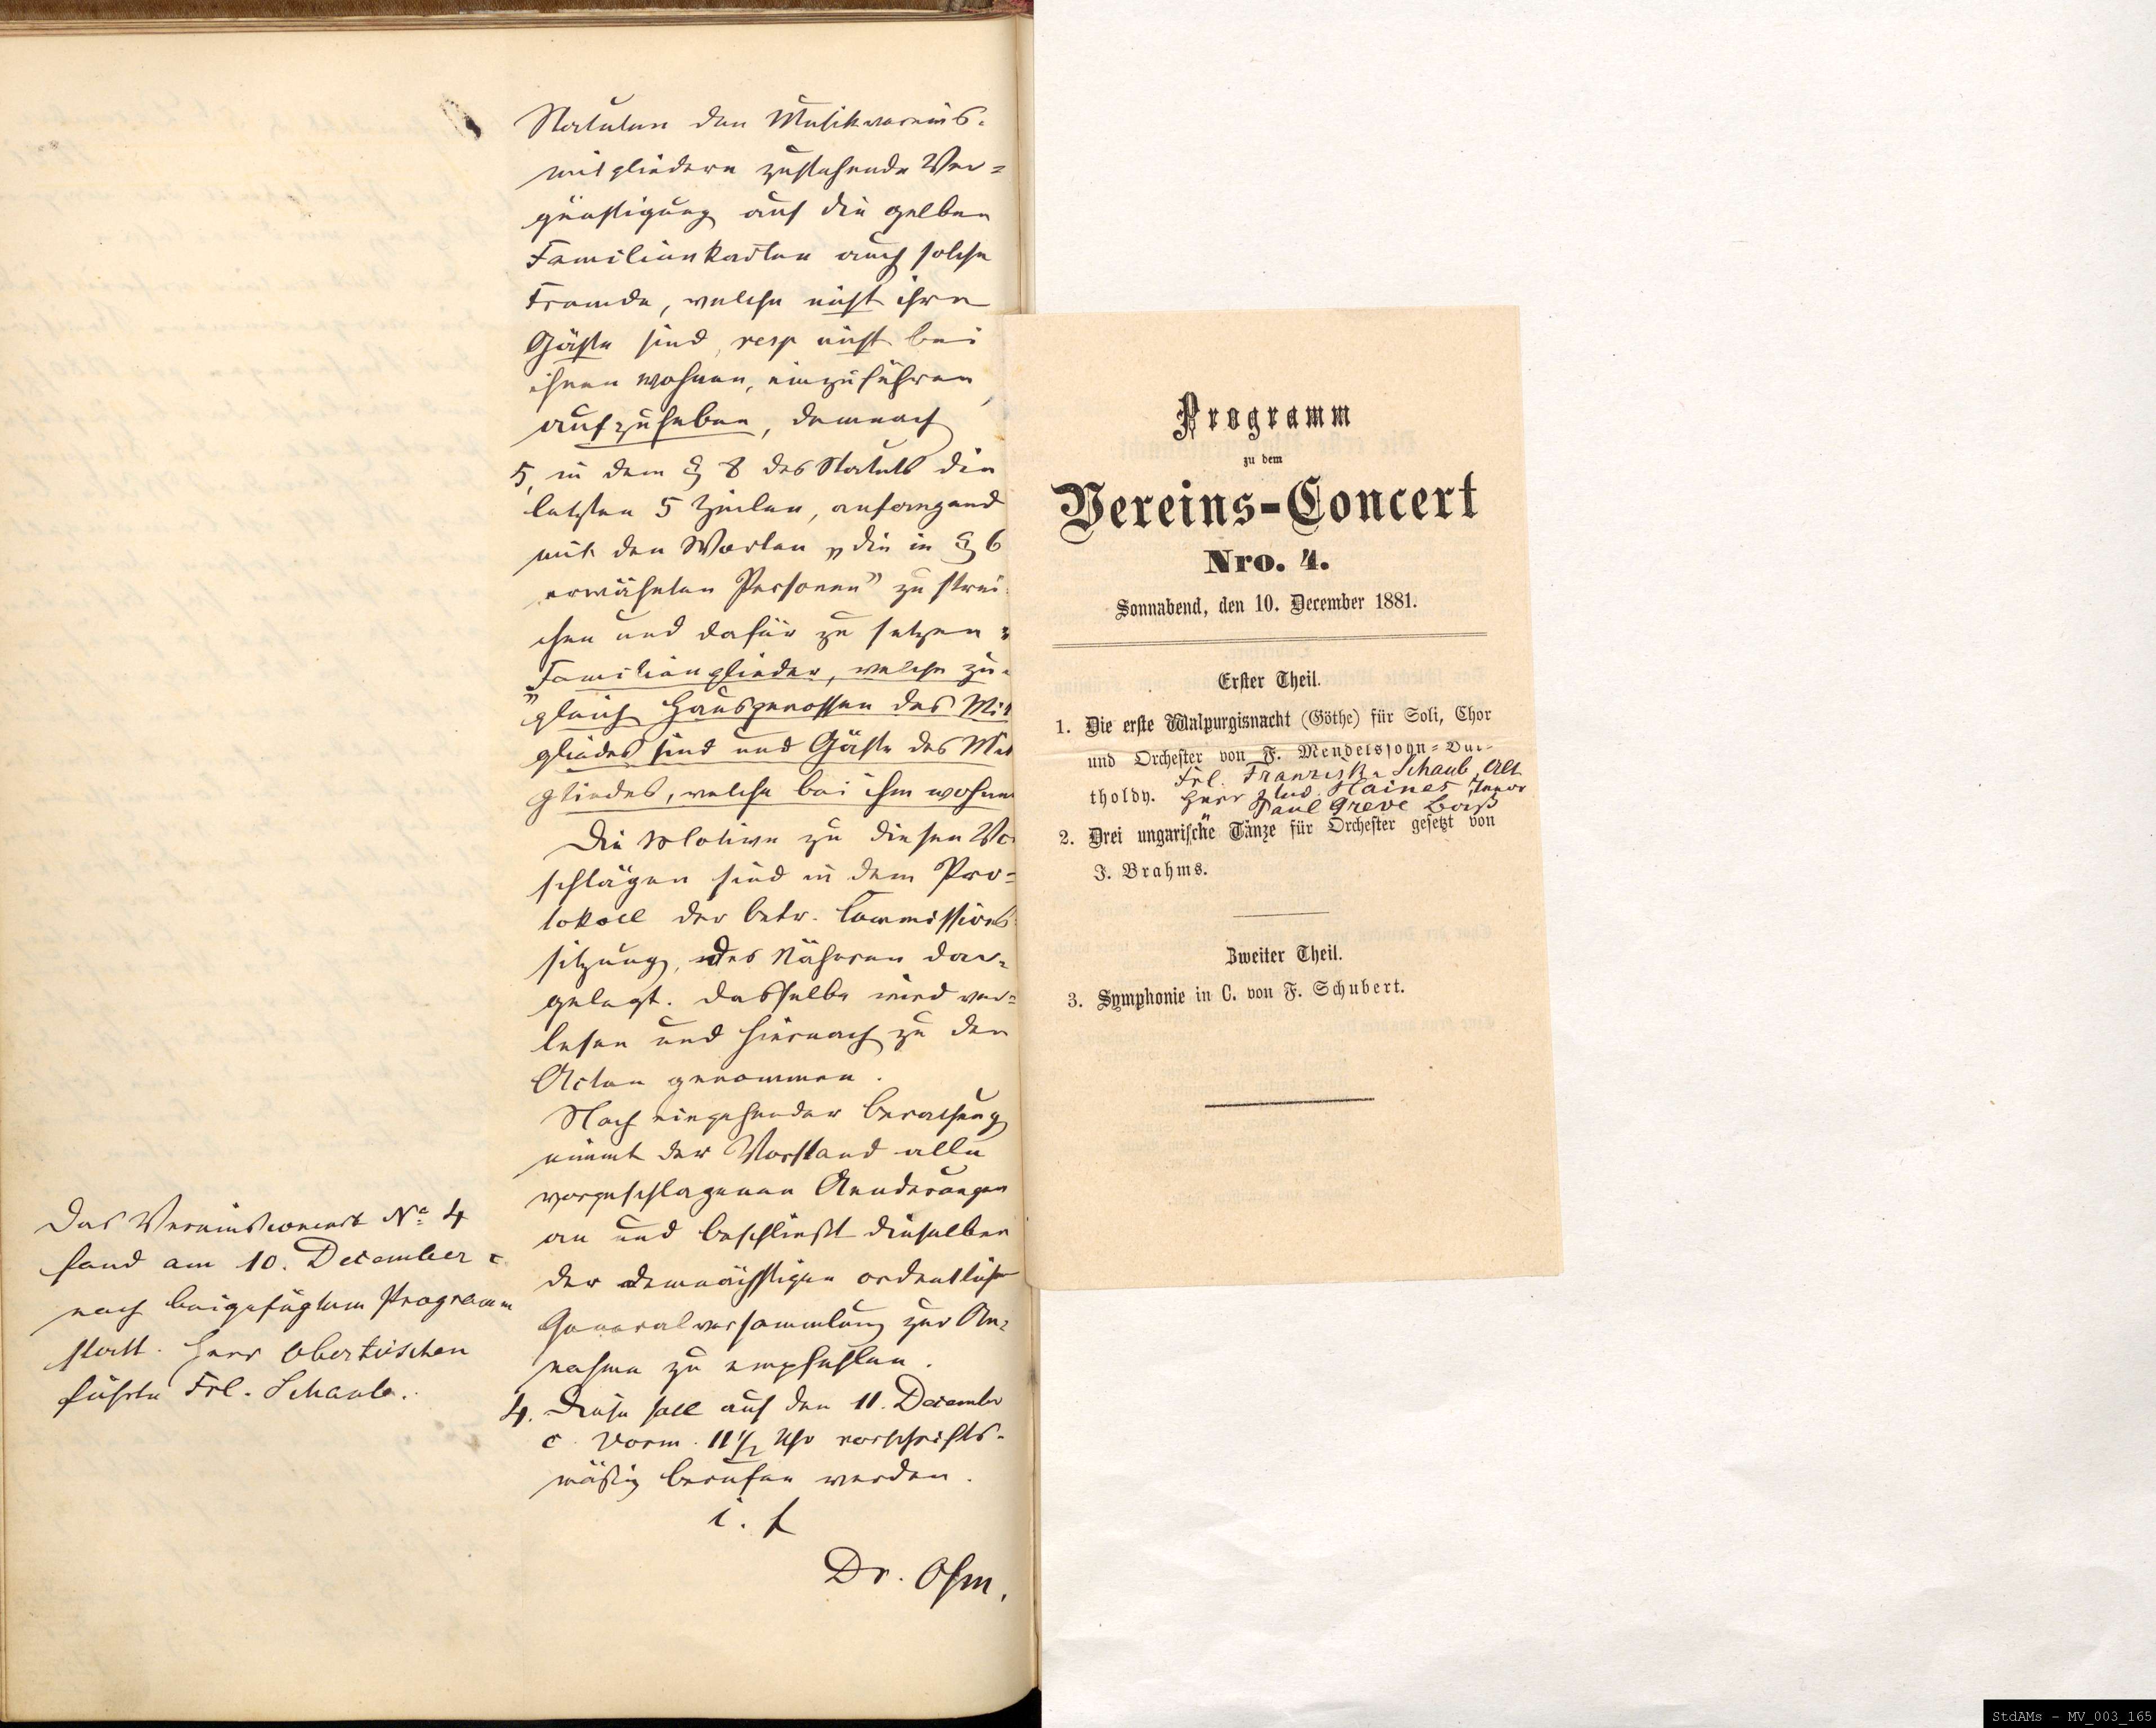 Statuten den Musikvereins-
mitgliedern zustehende Ver-
günstigung auf die gelben
Familienkarten auch solche
Fremde, welche nicht ihre
Gäste sind, resp nicht bei
ihnen wohnen, einzuführen,
aufzuheben, demnach
5, in dem § 8 des Statuts die
letzten 5 Zeilen, anfangend
mit den Worten „die in § 6
erwähnten Personen" zu strei-
chen und dafür zu setzen:
„Familienglieder, welche zu-
gleich Hausgenossen des Mit
gliedes sind und Gäste des Mit
gliedes, welche bei ihm wohnen
Die Motive zu diesen Vor
schlägen sind in dem Pro-
tokoll der betr. Commissions
sitzung, des Näheren dar-
gelegt. Dasselbe wird ver-
lesen und hiernach zu den
Acten genommen.
Nach eingehender Berathung
nimmt der Vorstand alle
vorgeschlagenen Aenderungen
an und beschließt dieselben
der demnächstigen ordentlichen
Generalversammlung zur An-
nahme zu empfehlen.
4. Diese soll auf den 11. December
c. Vorm. 11 1/2 Uhr vorschrifts-
mäßig berufen werden.
i. f
Dr. Ohm.
Das Vereinsconcert No 4
fand am 10. December c.
nach beigefügtem Programm
statt. Herr Obertüschen
führte Frl. Schaub.
Programm
zu dem
Vereins-Concert
Nro. 4.
Sonnabend, den 10. December 1881.
Erster Theil.
1. Die erste Walpurgisnacht (Göthe) für Soli, Chor
und Orchester von F. Mendelssohn-Bar-
Frl. Franziska Schaub, Alt
tholdy. Herr Haines Tenor
" Paul Greve Baß
2. Drei ungarische Tänze für Orchester gesetzt von
J. Brahms.
Zweiter Theil.
3. Symphonie in C. von F. Schubert.
StdAMs - MV_003_165